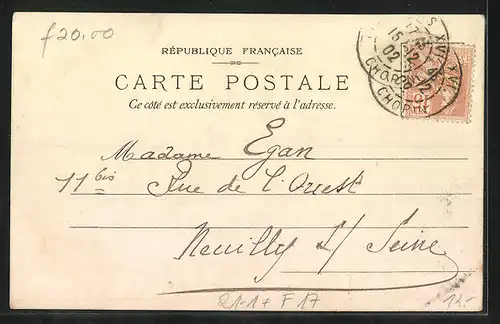 f20.00
RÉPUBLIQUE FRANÇAISE
CARTE POSTALE
Ce côté est exclusivement réservé à l'adresse.
Madame Egan
11 bis Rue de l'Ouest
Neuilly s/ Seine
21-1+ F 17
12.-